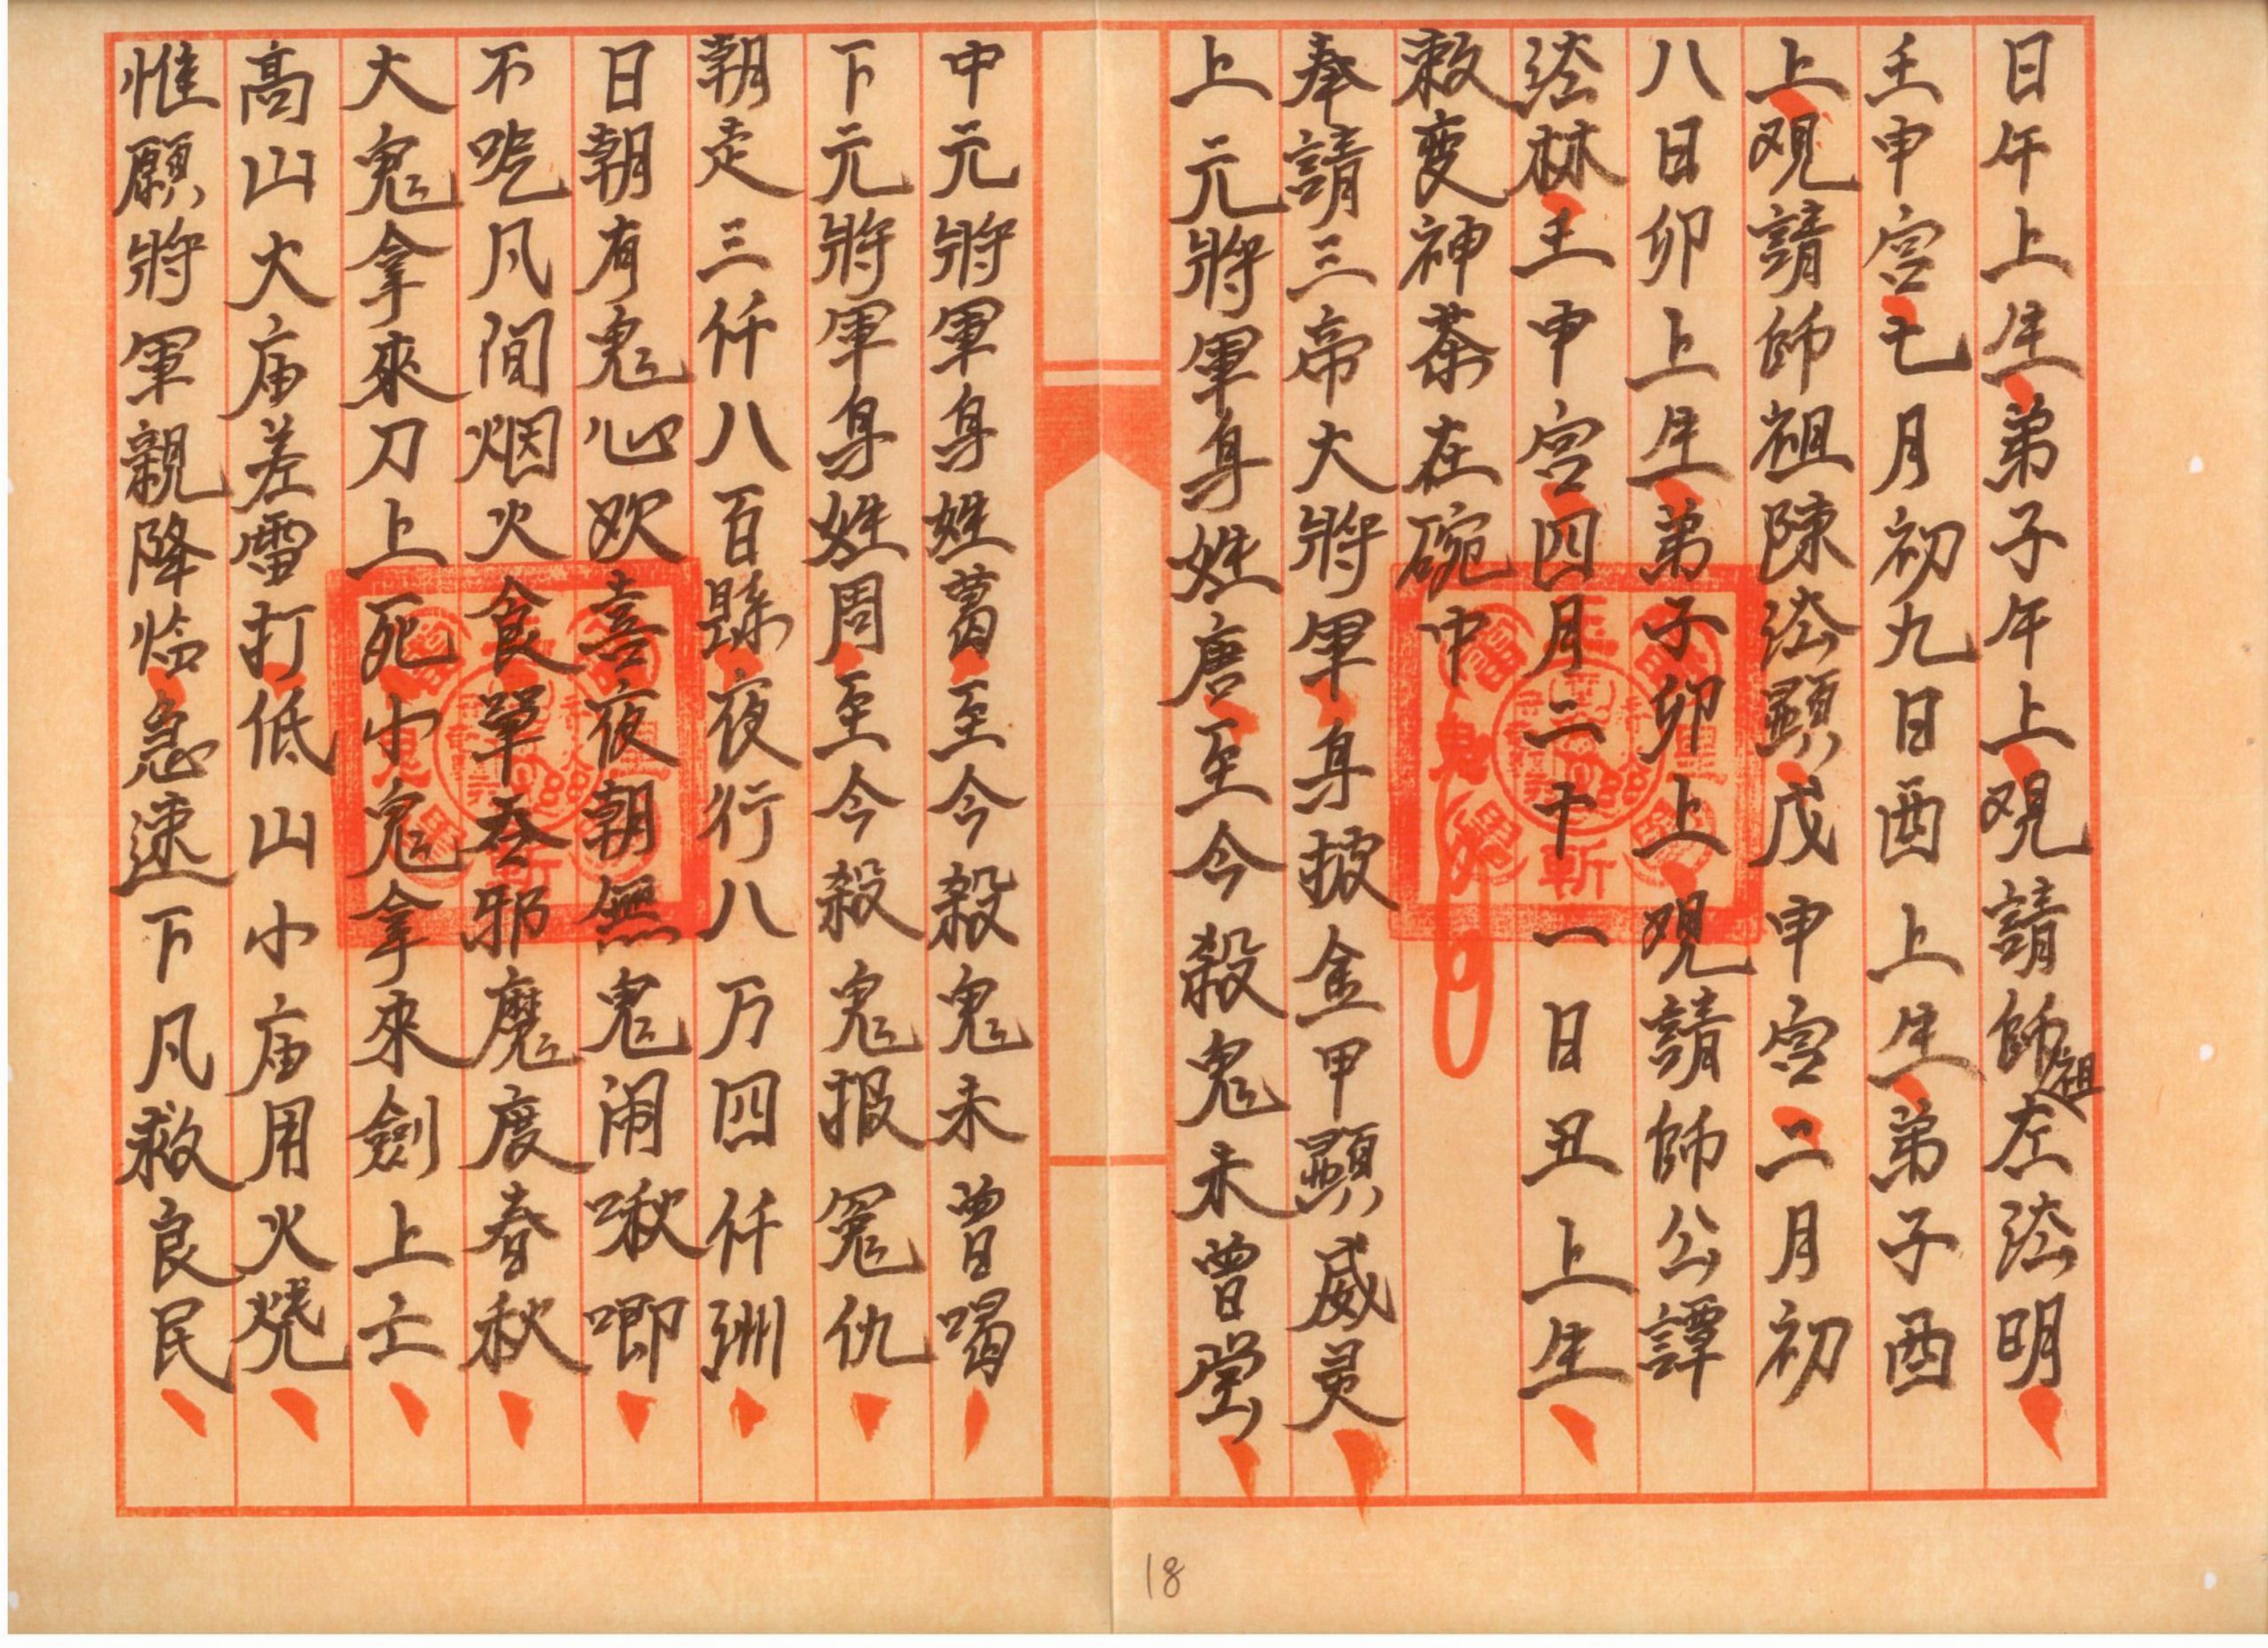 日午上生弟子午上覌請師祖左法明
壬申宫七月初九日酉上生弟子酉
上覌請師祖陳法顕戊申宫二月初
八日卯上生弟子卯上覌請師公譚
法林壬申宫四月二十一日丑上生
敕变神茶在碗中
奉請三帝大將軍身披金甲顕威灵
上元將軍身姓唐至今殺鬼未曽堂
中元將軍身姓葛至今殺鬼未曽喝
下元將軍身姓周至今殺鬼报冤仇
朝走三仟八百縣夜行八万四仟洲
日朝有鬼心欢喜夜朝無鬼闹啾唧
不吃凡间烟火食單吞邪魔度春秋
大鬼拿來刀上死小鬼拿來劍上亡
高山大庙差雷打低山小庙用火燒
惟願將軍親降临急速下凡救良民
18